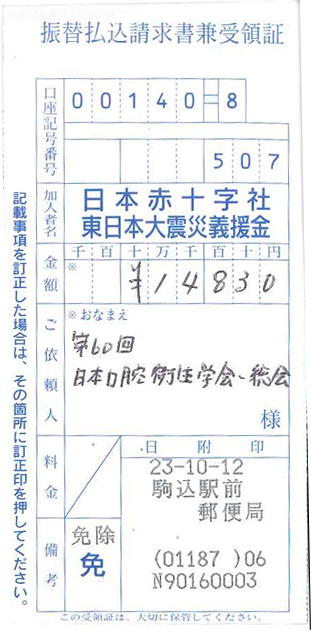 振替払込請求書兼受領証
口座記号番号
00140=8
507
加入者名
日本赤十字社
東日本大震災義援金
金額
千百十万千百十円
※
¥14830
ご依頼人
※おなまえ
第60回
日本口腔衛生学会・総会
様
料金
日附印
23-10-12
駒込駅前
郵便局
(01187 )06
N90160003
備考
免除
免
記載事項を訂正した場合は、その箇所に訂正印を押してください。
この受領証は、大切に保管してください。